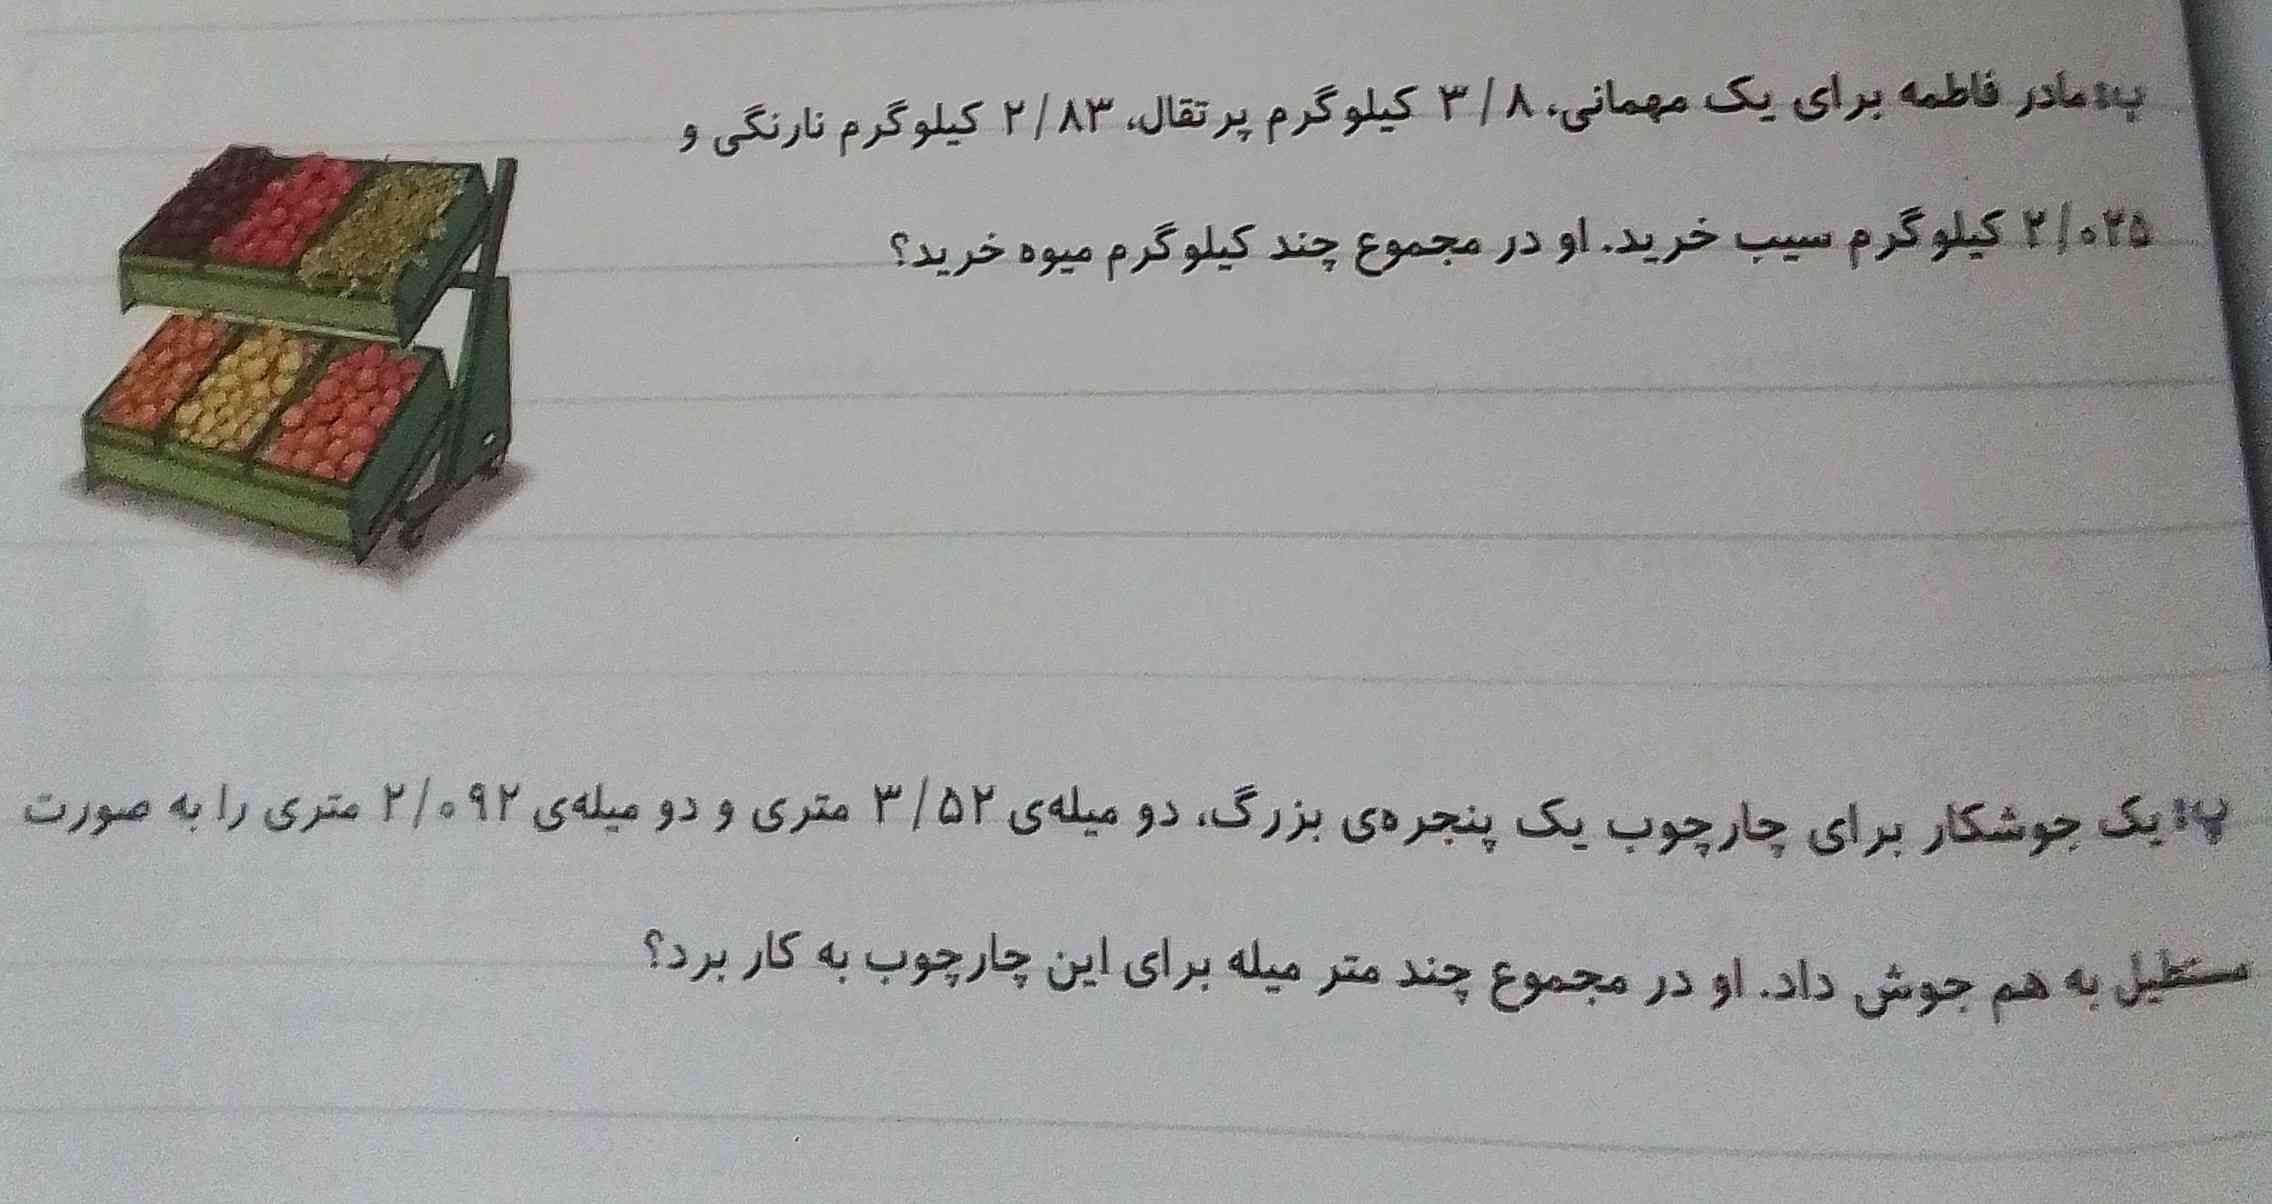 ب: مادر فاطمه برای یک مهمانی، ۳/۸ کیلوگرم پرتقال، ۲/۸۳ کیلوگرم نارنگی و
۲/۰۲۵ کیلوگرم سیب خرید. او در مجموع چند کیلوگرم میوه خرید؟
پ: یک جوشکار برای چارچوب یک پنجره‌ی بزرگ، دو میله‌ی ۳/۵۲ متری و دو میله‌ی ۲/۰۹۲ متری را به صورت
مستطیل به هم جوش داد. او در مجموع چند متر میله برای این چارچوب به کار برد؟